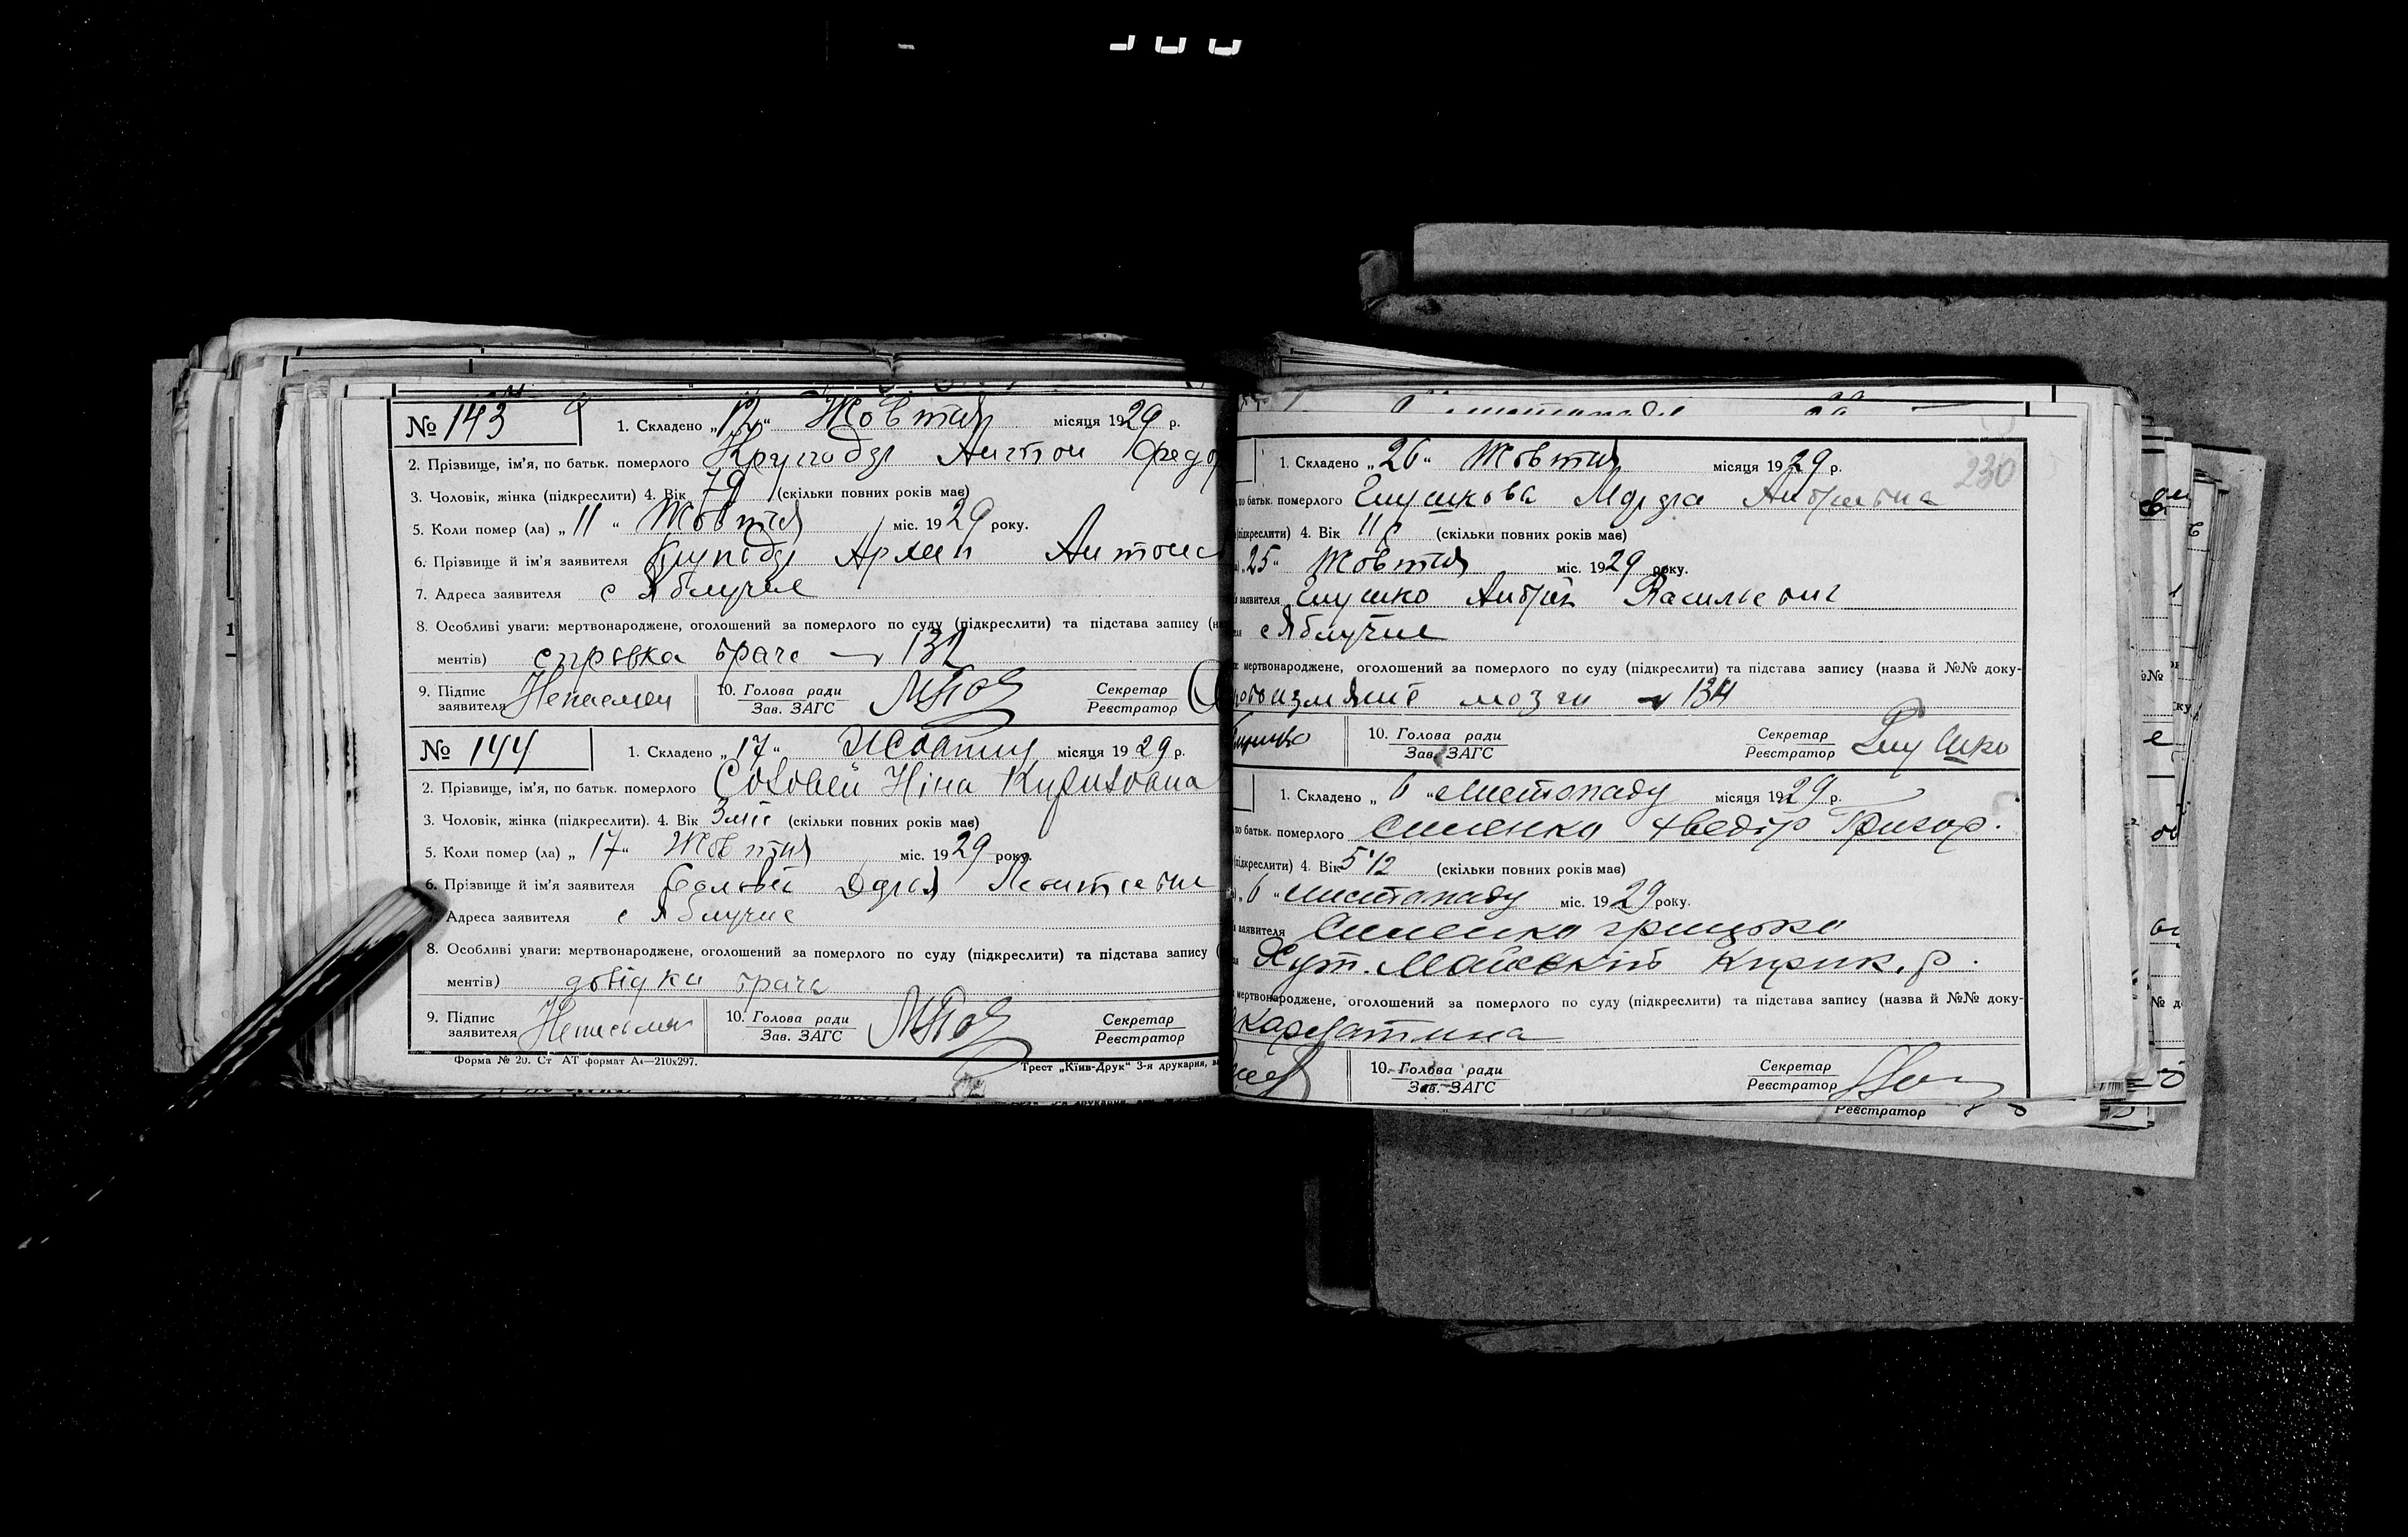 № 143
1. Складено „12“ Жовтня місяця 1929 р.
2. Прізвище, ім'я, по батьк. померлого Антон Федор
3. Чоловік, жінка (підкреслити) 4. Вік 79 (скільки повних років має)
5. Коли помер (ла) „11“ Жовтня міс. 1929 року.
6. Прізвище й ім'я заявителя Антонов
7. Адреса заявителя с Яблучне
8. Особливі уваги: мертвонароджене, оголошений за померлого по суду (підкреслити) та підстава запису (на
ментів) справка врача 132
9. Підпис заявителя
10. Голова ради
Зав. ЗАГС
Секретар
Реєстратор
№ 144
1. Складено „17“ Жовтня місяця 1929 р.
2. Прізвище, ім'я, по батьк. померлого Соловей Ніна Кириловна
3. Чоловік, жінка (підкреслити). 4. Вік 3 міс (скільки повних років має)
5. Коли помер (ла) „17“ Жовтня міс. 1929 року.
6. Прізвище й ім'я заявителя Соловей
Адреса заявителя с Яблучне
8. Особливі уваги: мертвонароджене, оголошений за померлого по суду (підкреслити) та підстава запису (
ментів) довідка врача
9. Підпис заявителя
10. Голова ради
Зав. ЗАГС
Секретар
Реєстратор
Форма № 20. Ст АТ формат А4—210х297.
Трест „Київ-Друк“ 3-я друкарня,
230
1. Складено „26“ Жовтня місяця 1929 р.
по батьк. померлого Глушкова Андріевна
(підкреслити) 4. Вік 11 (скільки повних років має)
„25“ Жовтня міс. 1929 року.
заявителя Глушко Андрій Васильевич
с Яблучне
мертвонароджене, оголошений за померлого по суду (підкреслити) та підстава запису (назва й №№ доку-
мозги 134
10. Голова ради
Зав. ЗАГС
Секретар
Реєстратор Глушко
1. Складено „6“ Листопаду місяця 1929 р.
по батьк. померлого Сименко Федір Григор.
(підкреслити) 4. Вік 5/12 (скільки повних років має)
„6“ листопаду міс. 1929 року.
заявителя Сименко Грицько
Хут. Майський Кирик. р.
мертвонароджене, оголошений за померлого по суду (підкреслити) та підстава запису (назва й №№ доку-
10. Голова ради
Зав. ЗАГС
Секретар
Реєстратор
Реєстратор